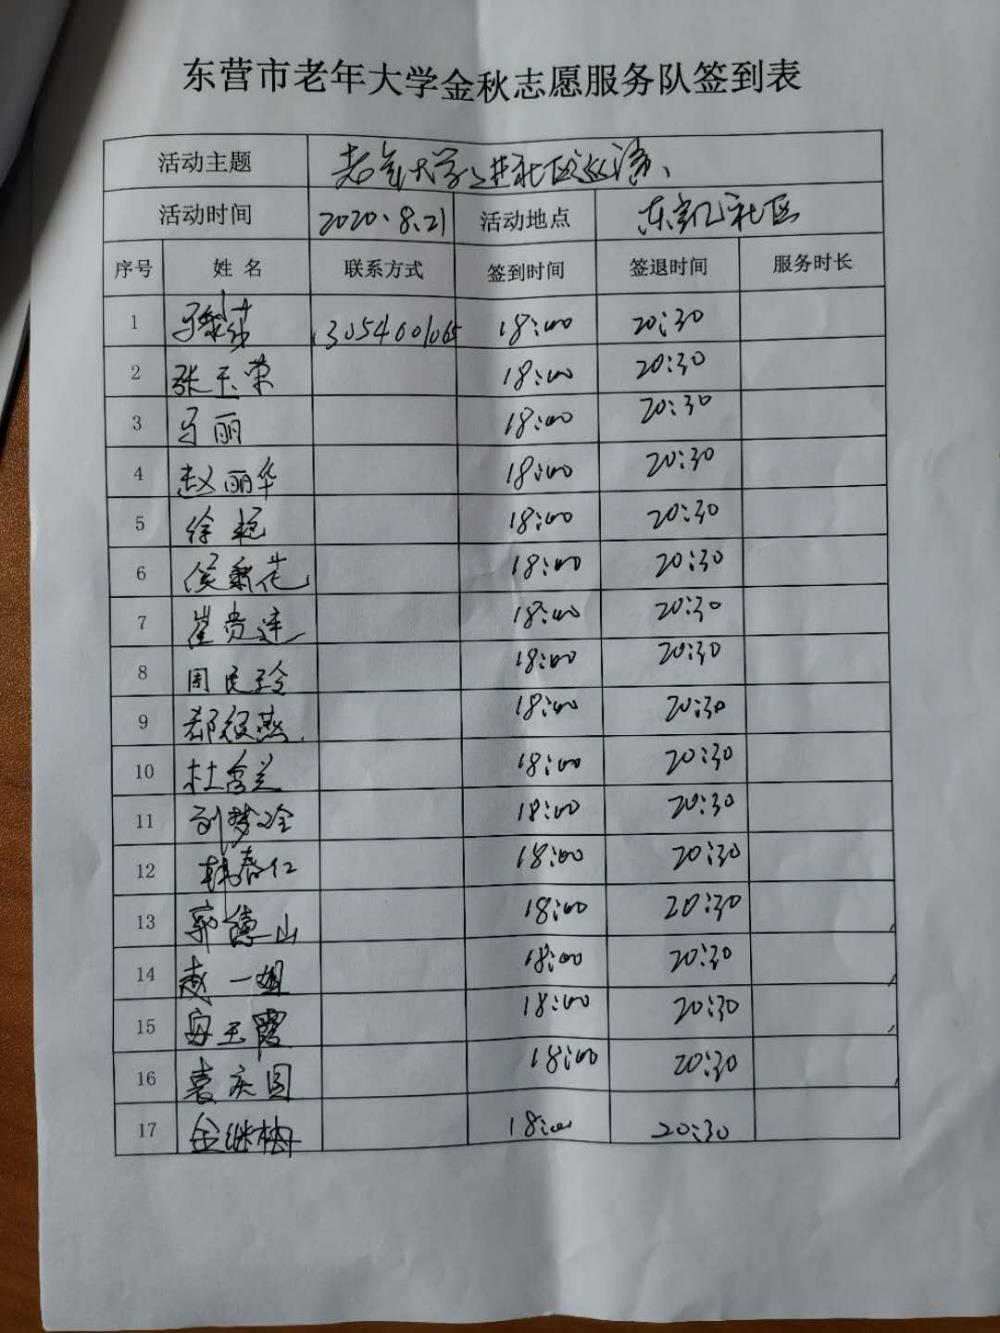 东营市老年大学金秋志愿服务队签到表
活动主题 老年大学进社区巡演、
活动时间 2020.8.21 活动地点 东凯社区
序号 姓名 联系方式 签到时间 签退时间 服务时长
1 13054001065 18:00 20:30
2 张玉荣 18:00 20:30
3 马丽 18:00 20:30
4 赵丽华 18:00 20:30
5 徐艳 18:00 20:30
6 侯菊花 18:00 20:30
7 崔贵连 18:00 20:30
8 周民玲 18:00 20:30
9 18:00 20:30
10 杜秀兰 18:00 20:30
11 刘梦玲 18:00 20:30
12 韩春仁 18:00 20:30
13 郭德山 18:00 20:30
14 赵一姐 18:00 20:30
15 安玉霞 18:00 20:30
16 袁庆国 18:00 20:30
17 金继梅 18:00 20:30